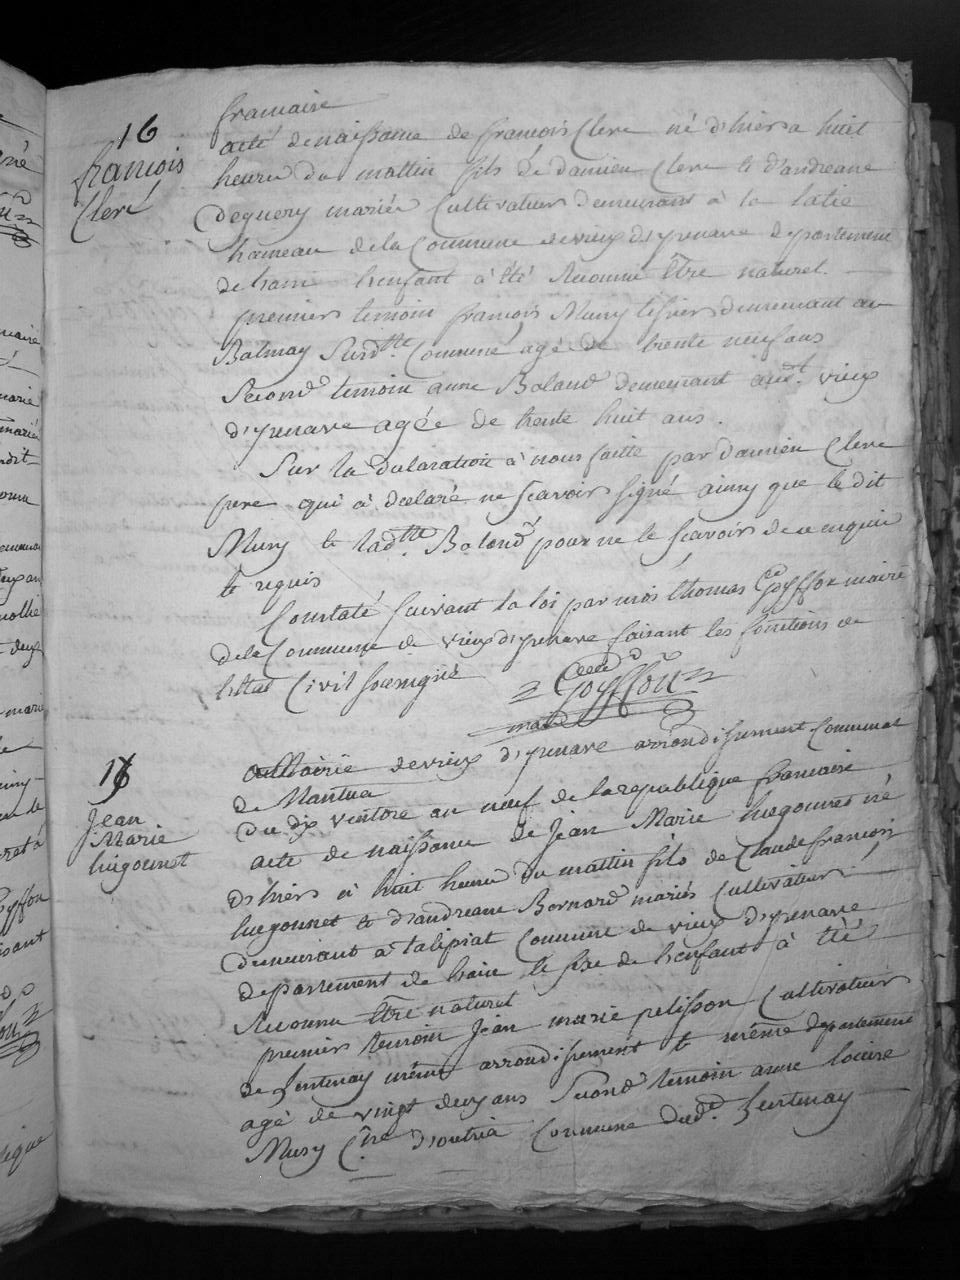 16
françois
Clerc
francaise
acte de naissance de françois Clerc né d'hiers a huit
heure du mattin fils de damien Clerc et d'andreane
Deguery mariés Cultivateurs demeurant à la latie
hameau de la Commune de vieux d'izenave departement
de l'ain l'enfant à été reconnu être naturel.
premiers temoin françois Mury tissiers demeurant au
Balmay susdtte Commune agé de trente neuf ans
Second temoin anne Baland demeurant audt vieux
d'yzenave agée de trente huit ans.
Sur la declaration à nous faitte par damien Clerc
pere qui à déclaré ne scavoir signé ainsy que le dit
Mury et ladtte Baland pour ne le scavoir de ce enquis
et requis
Constaté suivant la loi par moi thomas Goyffon maire
de la Commune de vieux d'yzenave faisant les fonctions de
l'etat Civil soussigné
Goyffon
maire
17
Jean
Marie
hugounet
Mairie de vieux d'yzenave arrondissement Communal
de Nantua
Du dix ventose an neuf de la republique francaise
acte de naissance de Jean Marie hugounet né
d'hiers à huit heure du mattin fils de Claude françois
hugounet et d'andreane Bernard mariés Cultivateurs
demeurant à talipiat Commune de vieux d'yzenave
departement de l'ain le sixe de l'enfant à été
reconnu être naturel
premiers temoin Jean marie pelisson Cultivateurs
de Lentenay même arrondissement et même departement
agé de vingt deux ans Second temoin anne
Mury d'outria Commune dudt Lentenay